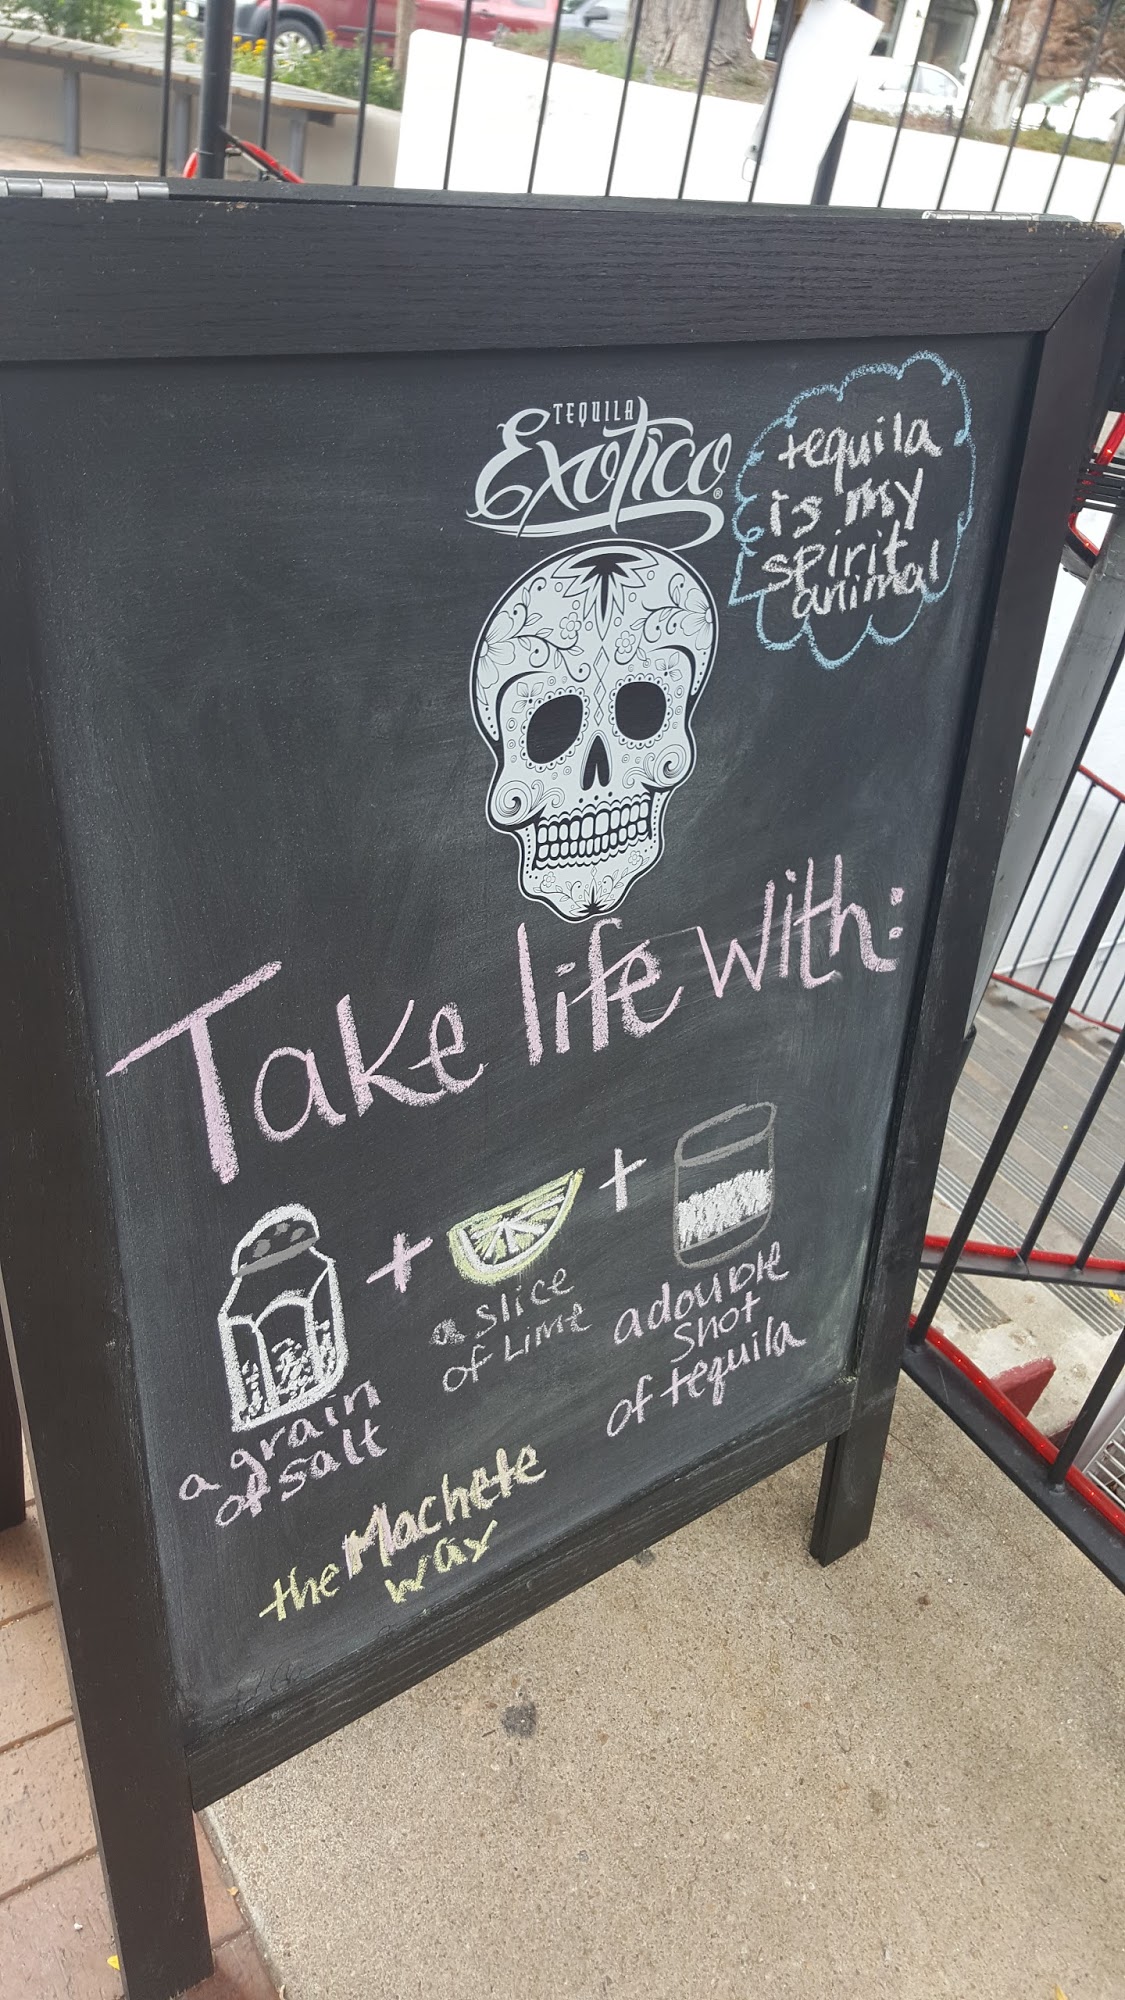 TEQUILA
Exotico®
tequila
is my
spirit
animal
Take life with:
+
+
a grain
of salt
a slice
of Lime
a double
shot
of tequila
the Machete
way